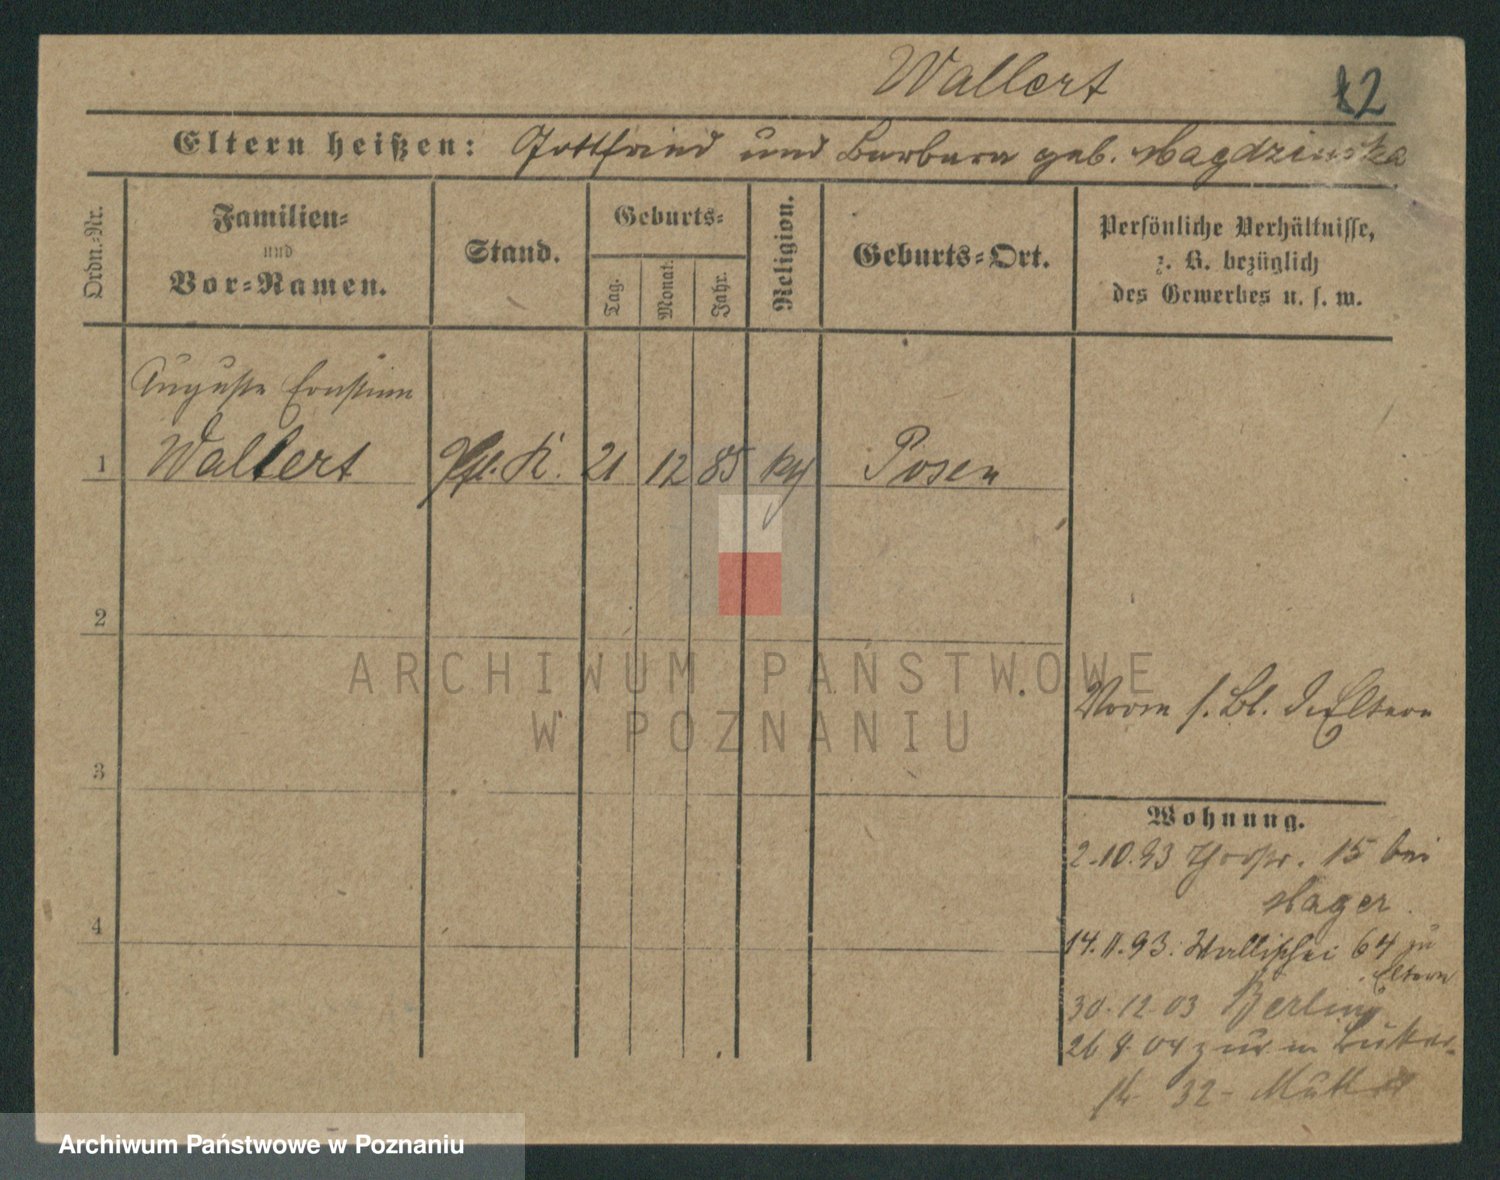 Wallert
12
Eltern heißen: Gottfried und Barbara geb. Magdzinska
Ordn.-Nr.
Familien-
und
Vor-Namen.
Stand.
Geburts-
Tag.
Monat.
Jahr.
Religion.
Geburts-Ort.
Persönliche Verhältnisse,
z. B. bezüglich
des Gewerbes u. s. w.
Auguste Ernstine
1 Wallert K. 21 12 85 Posen
2
ARCHIWUM PAŃSTWOWE
W POZNANIU
Vorm s. Bl. d. Eltern
3
Wohnung.
2.10.93 15 bei
Hager
4
14.11.93. Wallischei 64 zu
Eltern
30.12.03 Berlin
26 8 04 zur. in
32 -
Archiwum Państwowe w Poznaniu